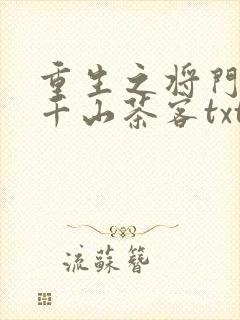 重生之将門
千山茶客txt
流蘇簪